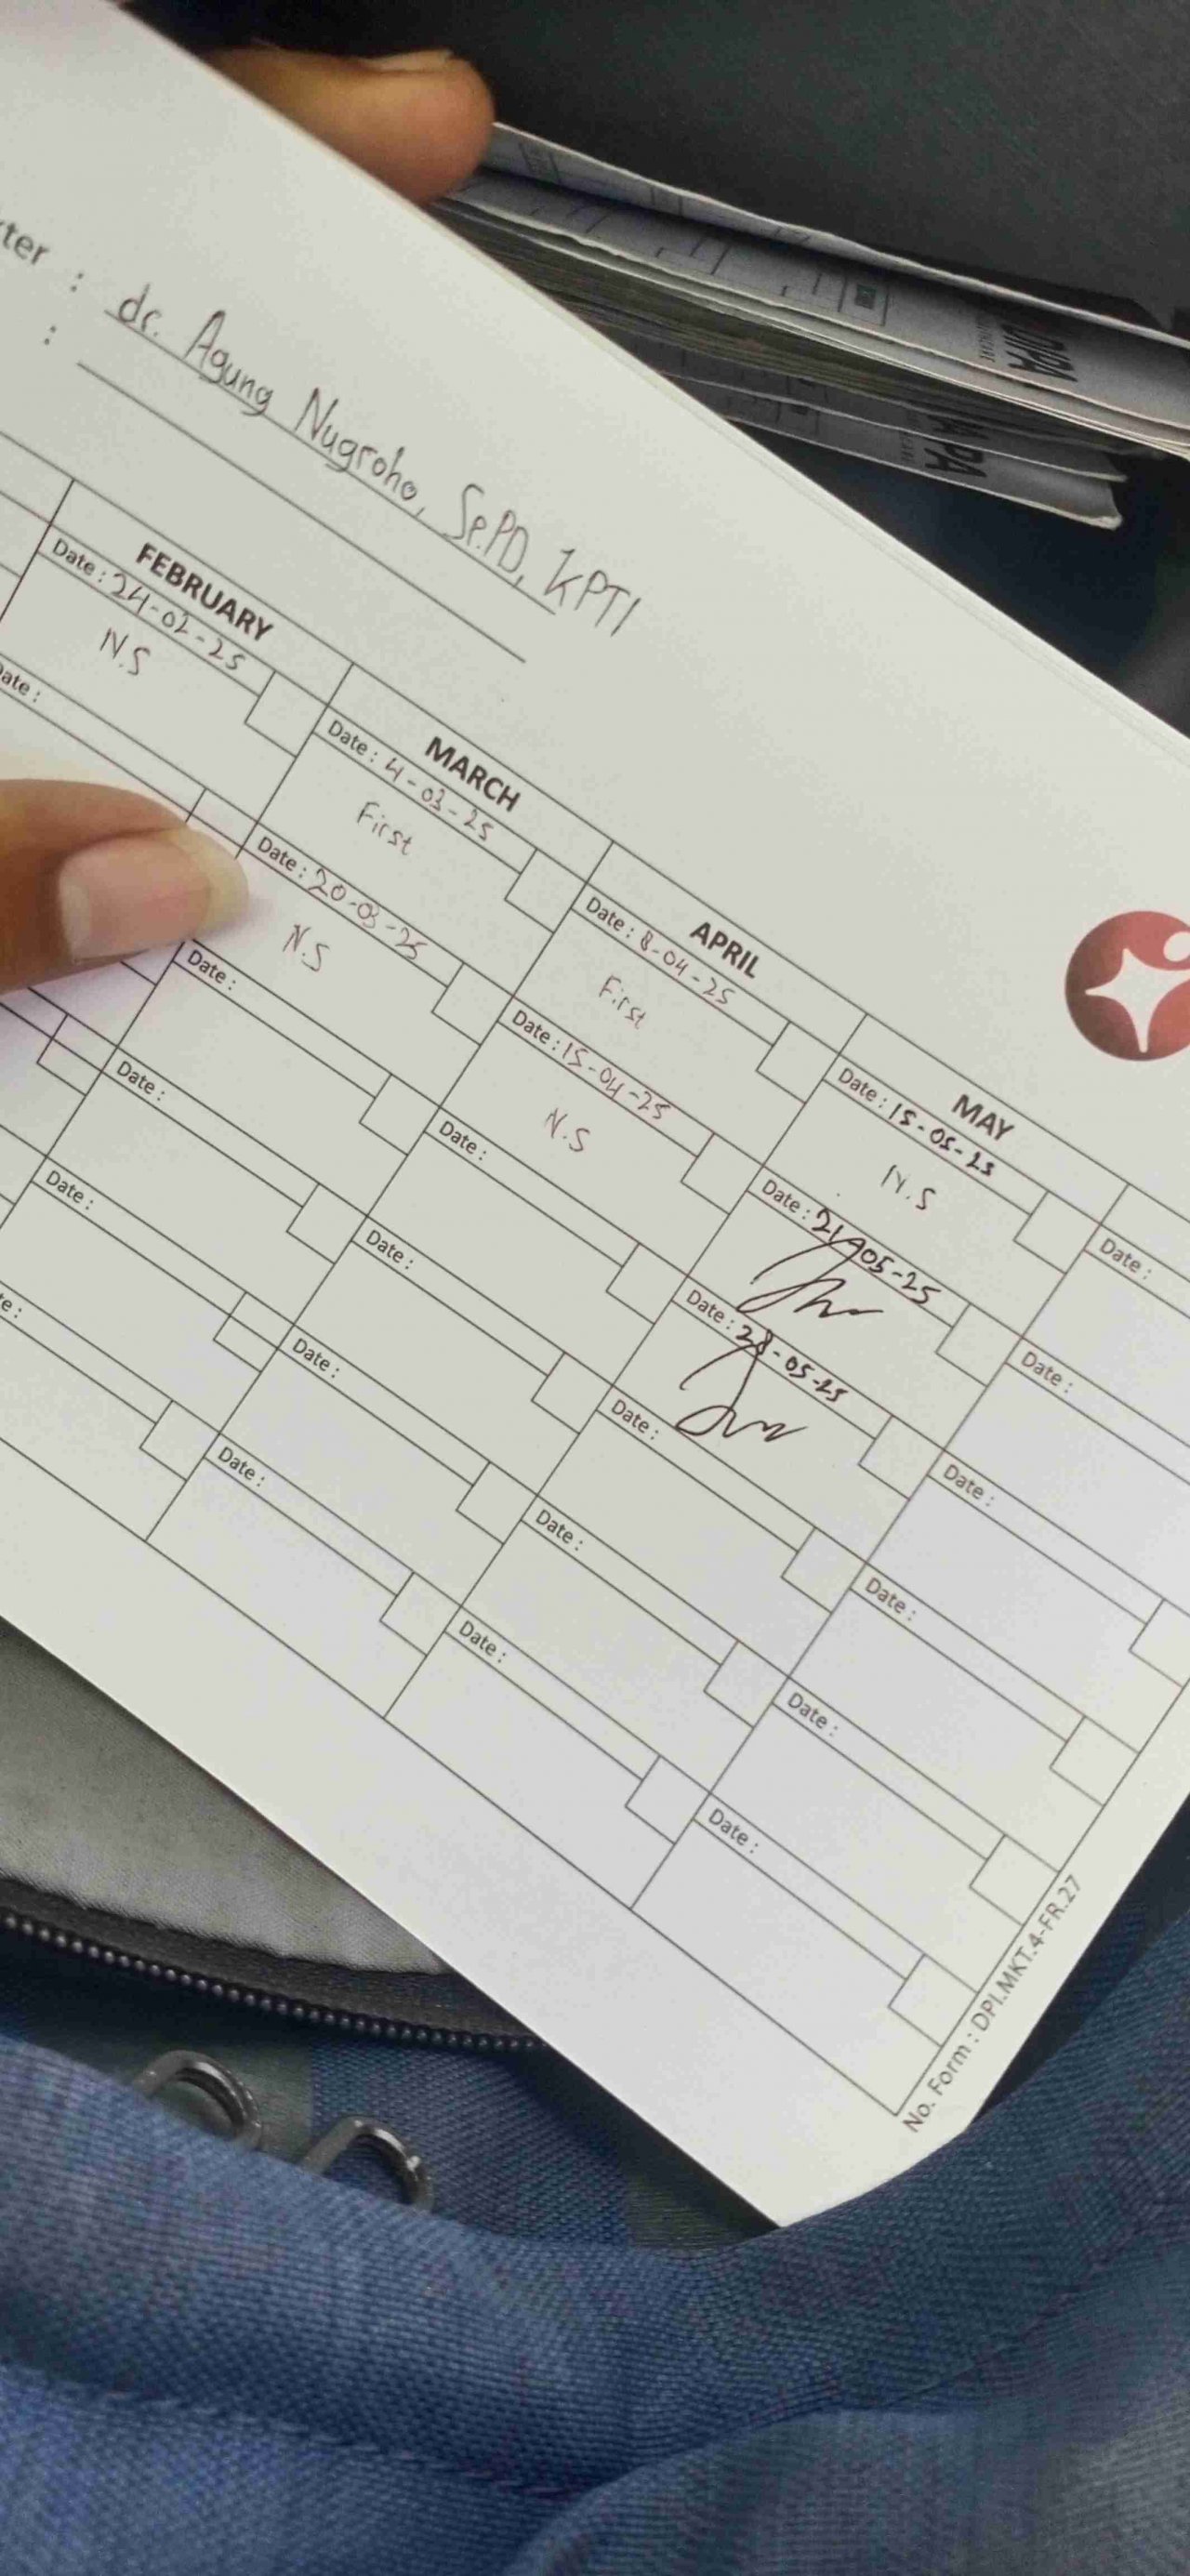 : dr. Agung Nugroho, Sp.PD, KPTI
:
FEBRUARY
MARCH
APRIL
MAY
Date : 24-02-25
Date : 4-03-25
Date : 8-04-25
Date : 15-05-25
Date :
N.S
First
First
N.S
Date : 20-03-25
Date : 15-04-25
Date : 21-05-25
Date :
N.S
N.S
Date :
Date :
Date : 28-05-25
Date :
Date :
Date :
Date :
Date :
Date :
Date :
Date :
Date :
Date :
Date :
Date :
No. Form : DPI.MKT.4-FR.27